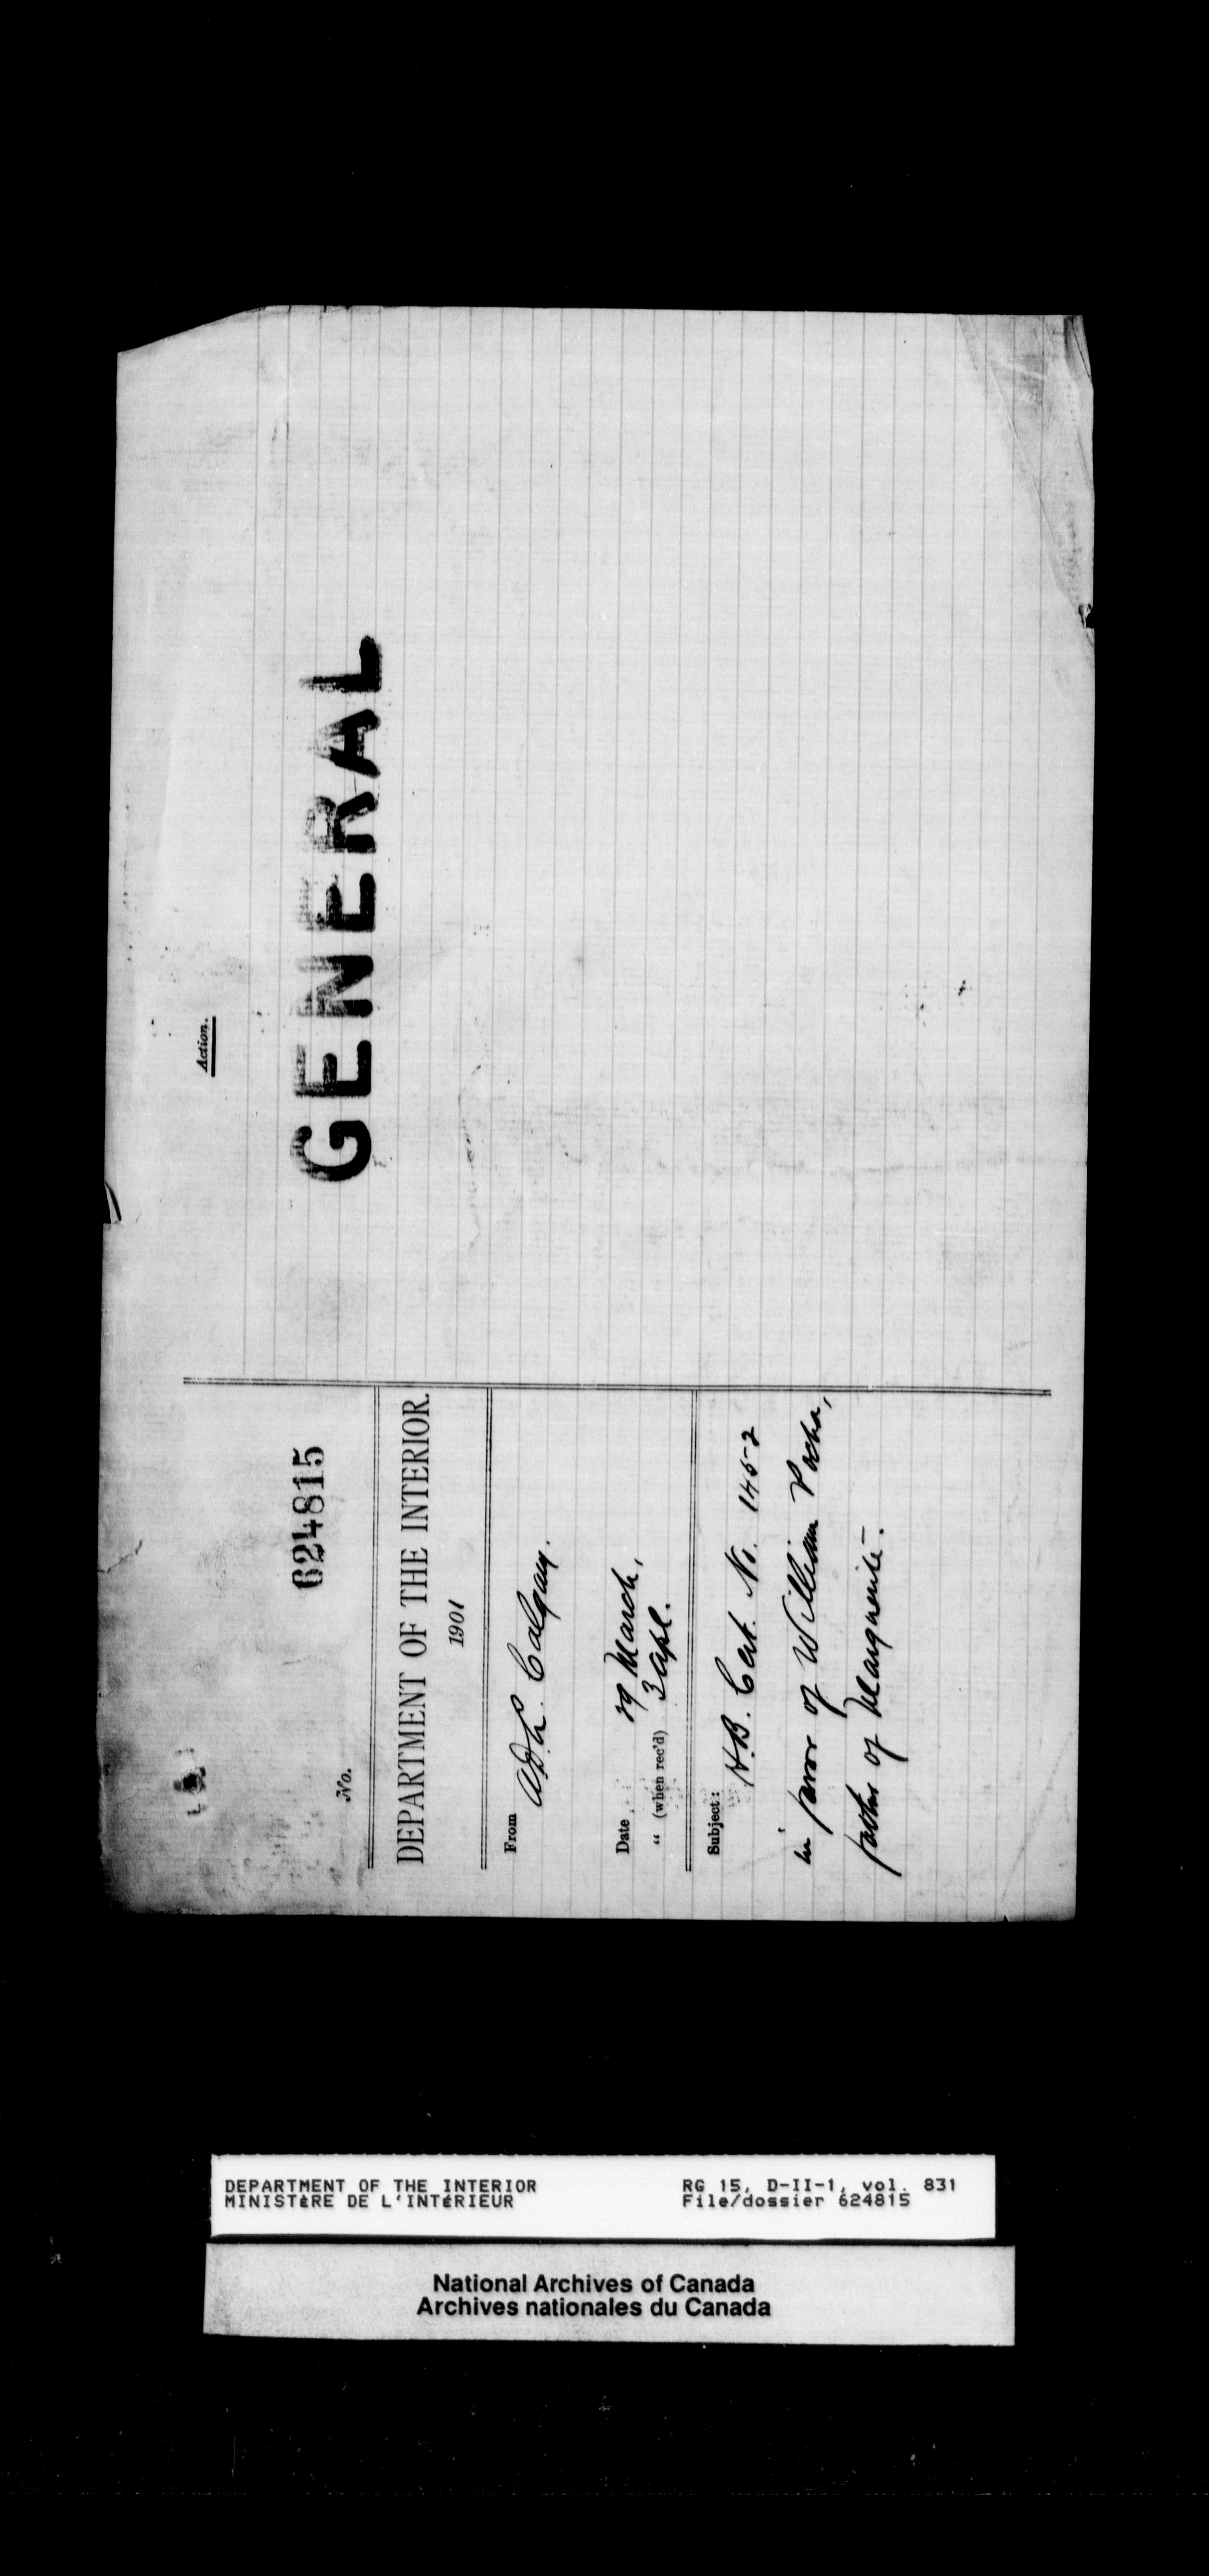 Action.
GENERAL
624815
No.
DEPARTMENT OF THE INTERIOR.
1901
From
Calgary.
Date 29 March,
" (when rec'd) 3 Apl.
Subject:
H.B. Cert. No. 1452
in favor of William Pacha,
father of Marguerite.
DEPARTMENT OF THE INTERIOR
MINISTÈRE DE L'INTÉRIEUR
RG 15, D-II-1, vol. 831
File/dossier 624815
National Archives of Canada
Archives nationales du Canada